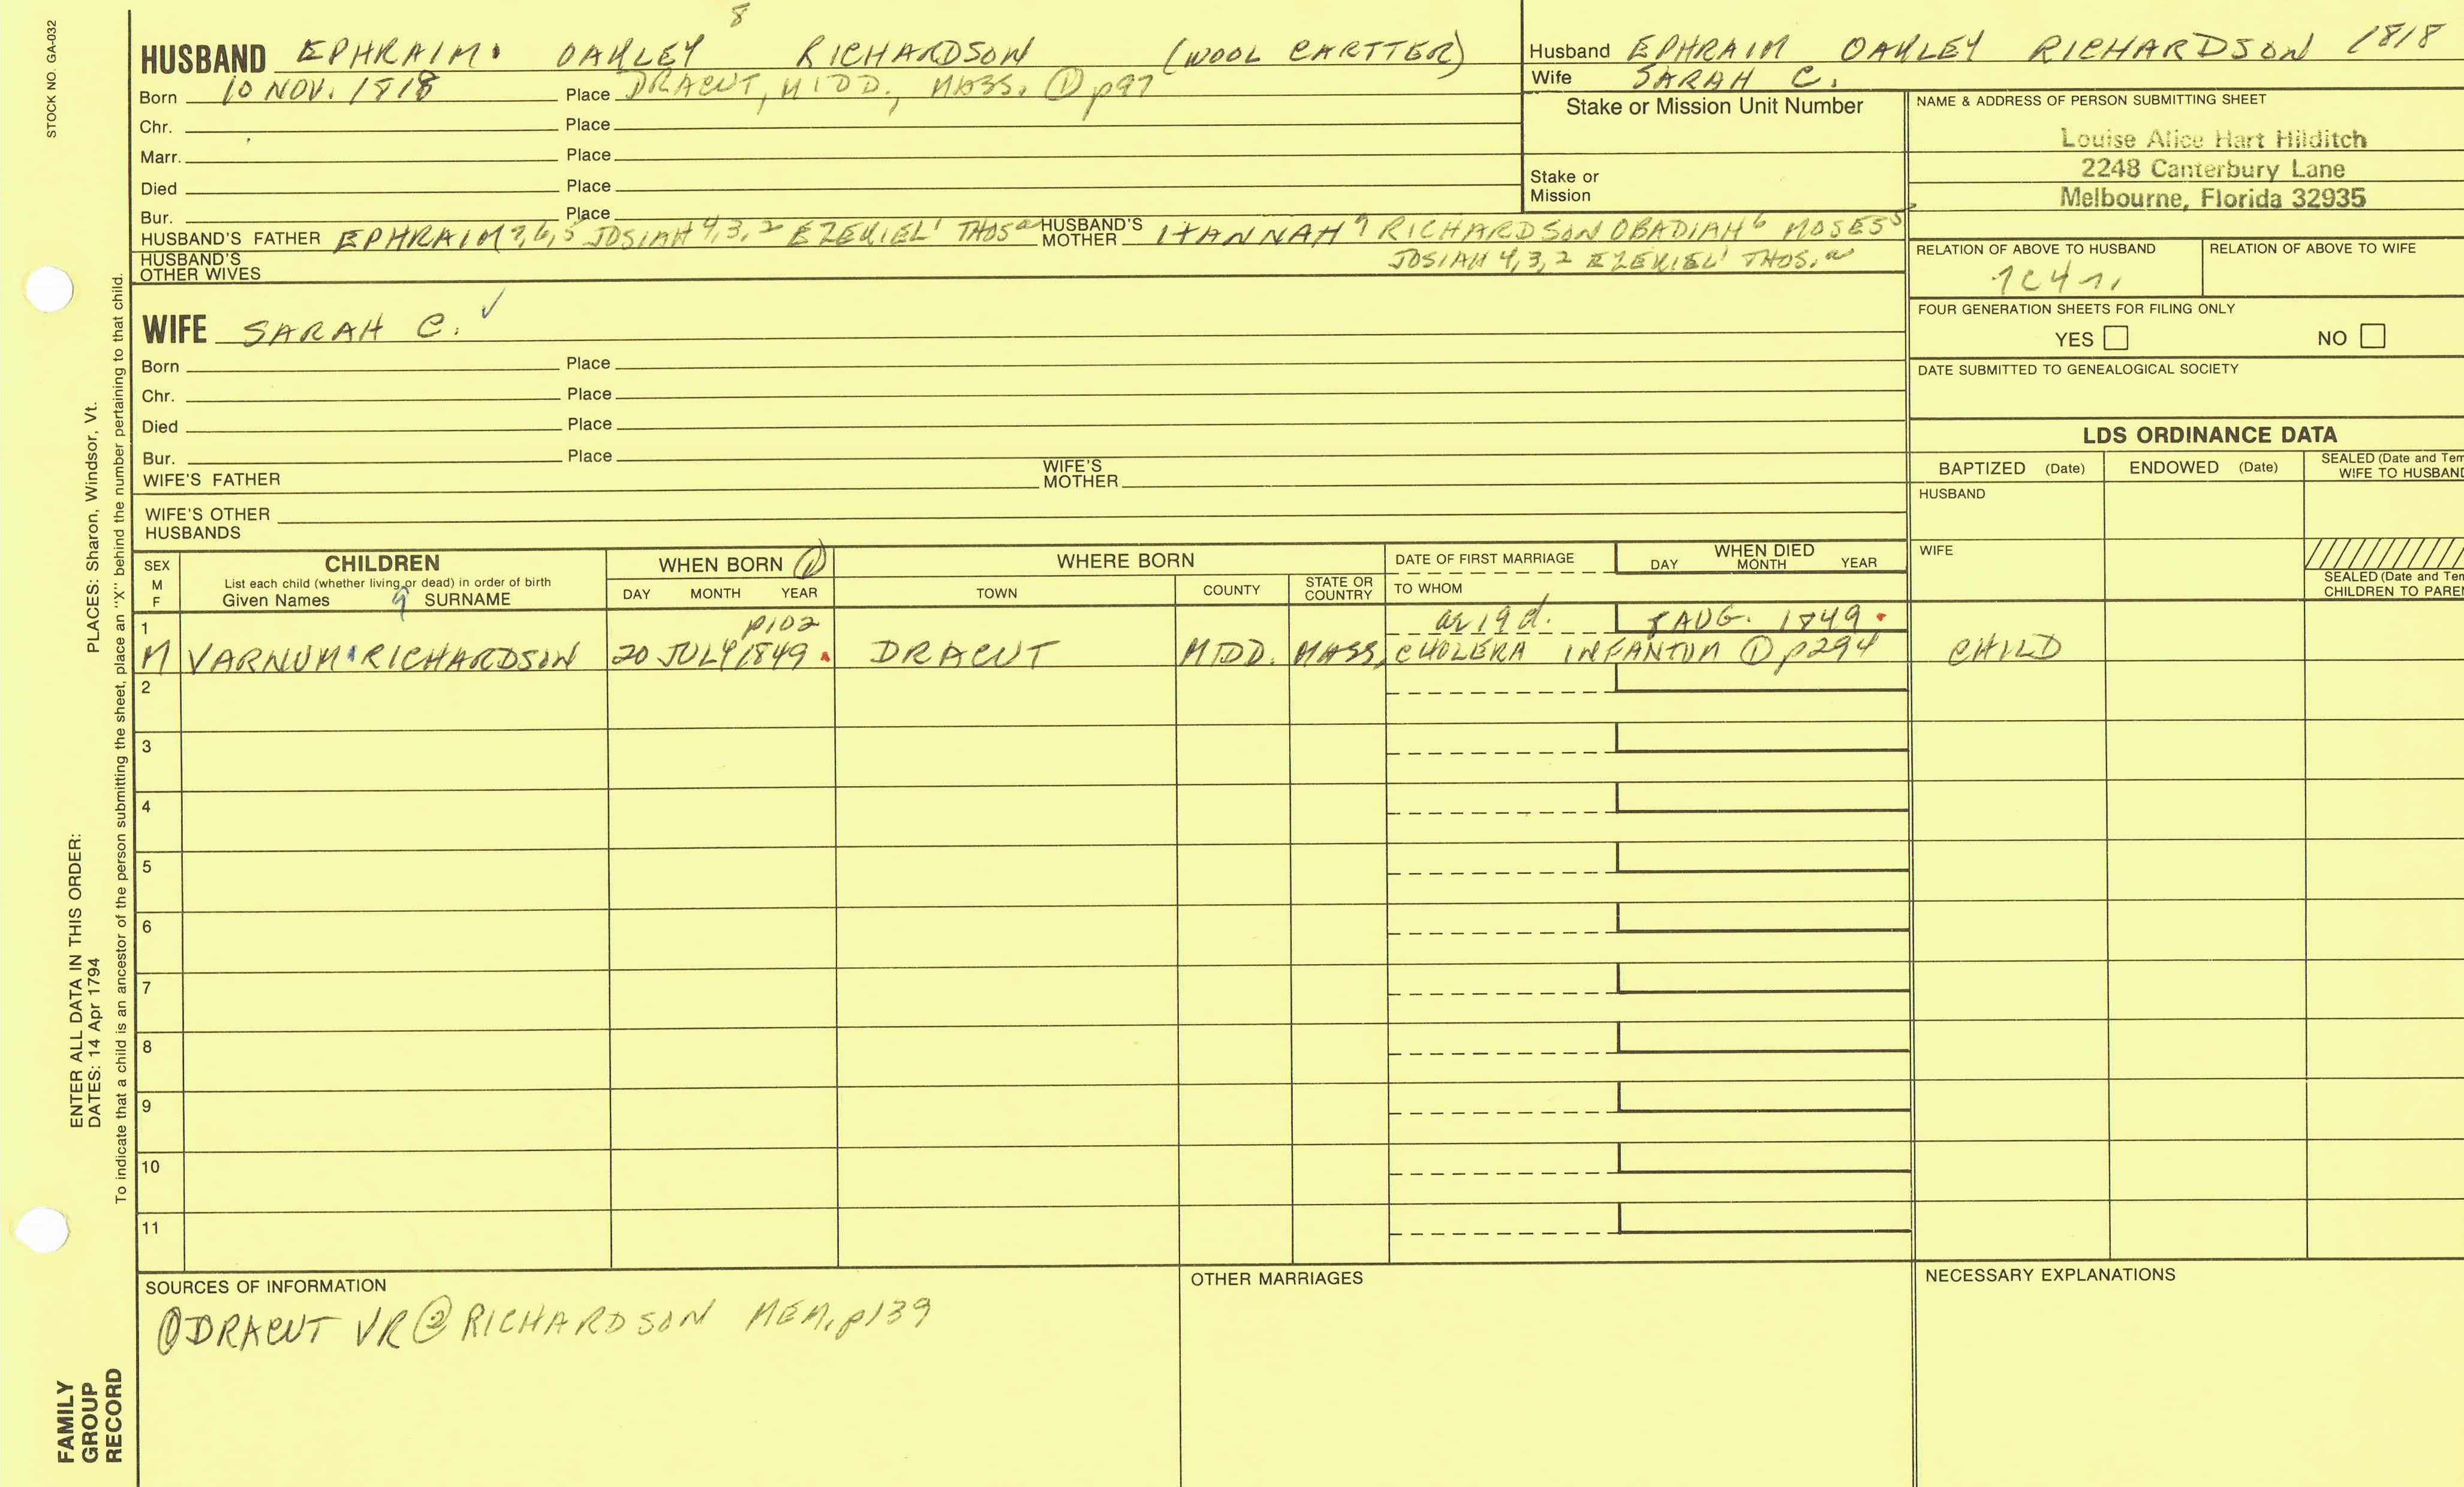 STOCK NO. GA-032
8
HUSBAND EPHRAIM OAKLEY RICHARDSON (WOOL CARTTER)
Born 10 NOV. 1818 Place DRACUT, MIDD., MASS. ① p97
Chr. Place
Marr. Place
Died Place
Bur. Place
HUSBAND'S FATHER EPHRAIM 7,6,5 JOSIAH 4,3,2 EZEKIEL 1 THOS a HUSBAND'S MOTHER HANNAH 7 RICHARDSON OBADIAH 6 MOSES 5
JOSIAH 4,3,2 EZEKIEL 1 THOS. a
HUSBAND'S OTHER WIVES
WIFE SARAH C. ✓
Born Place
Chr. Place
Died Place
Bur. Place
WIFE'S FATHER WIFE'S MOTHER
WIFE'S OTHER HUSBANDS
Husband EPHRAIM OAKLEY RICHARDSON 1818
Wife SARAH C.
Stake or Mission Unit Number
Stake or Mission
NAME & ADDRESS OF PERSON SUBMITTING SHEET
Louise Alice Hart Hilditch
2248 Canterbury Lane
Melbourne, Florida 32935
RELATION OF ABOVE TO HUSBAND RELATION OF ABOVE TO WIFE
FOUR GENERATION SHEETS FOR FILING ONLY
YES NO
DATE SUBMITTED TO GENEALOGICAL SOCIETY
LDS ORDINANCE DATA
BAPTIZED (Date) ENDOWED (Date) SEALED (Date and Tem
WIFE TO HUSBAND
HUSBAND
WIFE
SEALED (Date and Tem
CHILDREN TO PAREN
SEX M F CHILDREN WHEN BORN ① WHERE BORN DATE OF FIRST MARRIAGE WHEN DIED
List each child (whether living or dead) in order of birth
Given Names 9 SURNAME DAY MONTH YEAR TOWN COUNTY STATE OR COUNTRY TO WHOM DAY MONTH YEAR
1 p102 ae 19 d. 8 AUG. 1849
M VARNUM RICHARDSON 20 JULY 1849 DRACUT MIDD. MASS, CHOLERA INFANTUM ① p294 CHILD
2
3
4
5
6
7
8
9
10
11
SOURCES OF INFORMATION OTHER MARRIAGES NECESSARY EXPLANATIONS
① DRACUT VR ② RICHARDSON MEM. p139
PLACES: Sharon, Windsor, Vt.
ENTER ALL DATA IN THIS ORDER:
DATES: 14 Apr 1794
To indicate that a child is an ancestor of the person submitting the sheet, place an "X" behind the number pertaining to that child.
FAMILY
GROUP
RECORD